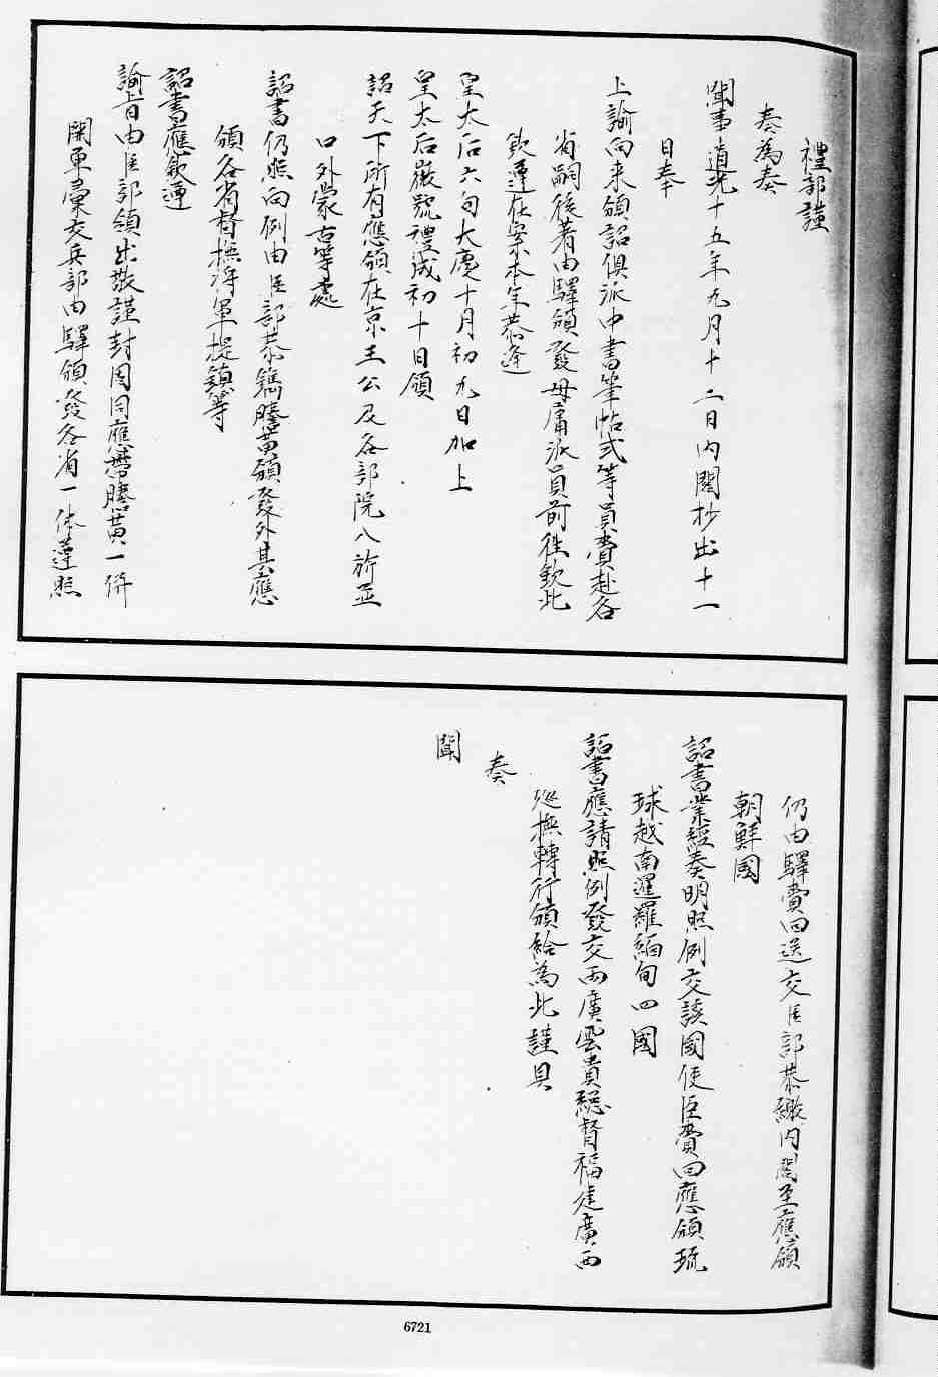 禮部謹
奏為奏
聞事道光十五年九月十二日內閣抄出十一
日奉
上諭向来頒詔俱派中書筆帖式等員賫赴各
省嗣後著由驛頒發毋庸派員前徃欽此
欽遵在案本年恭逢
皇太后六旬大慶十月初九日加上
皇太后徽號禮成初十日頒
詔天下所有應頒在京王公及各部院八旂並
口外蒙古等處
詔書仍照向例由臣部恭鐫謄黄頒發外其應
頒各省督撫将軍提鎮等
詔書應欽遵
諭旨由臣部領出敬謹封固同應帶謄黄一併
開单彙交兵部由驛頒發各省一体遵照
仍由驛賫回送交臣部恭繳內閣至應頒
朝鮮國
詔書業經奏明照例交該國使臣賫回應頒琉
球越南暹羅緬甸四國
詔書應請照例發交两廣雲貴總督福建廣西
廵撫轉行頒給為此謹具
奏
聞
6721